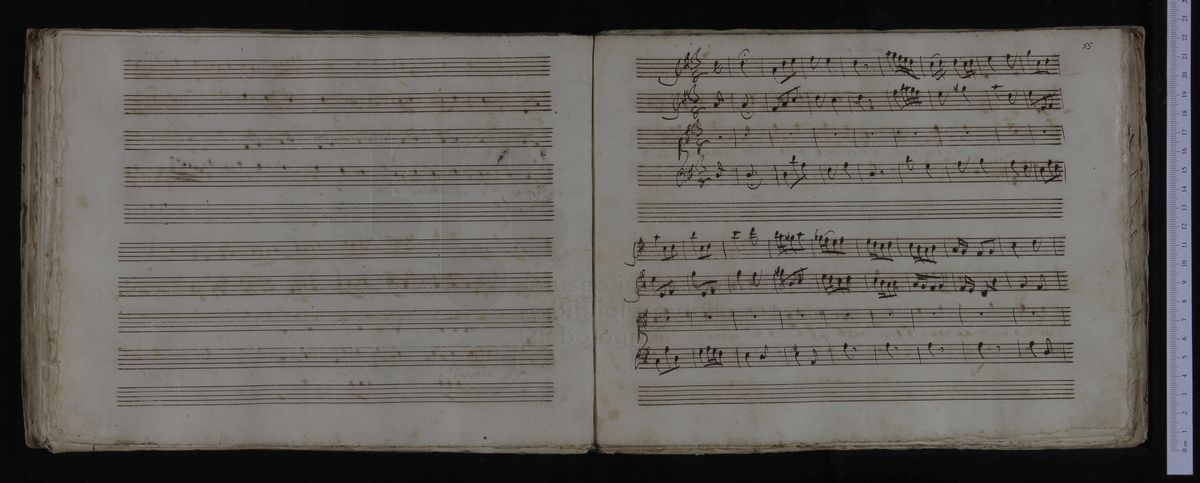 55
museo in
bibliote
bologn
0 cm 1 2 3 4 5 6 7 8 9 10 11 12 13 14 15 16 17 18 19 20 21 22 23